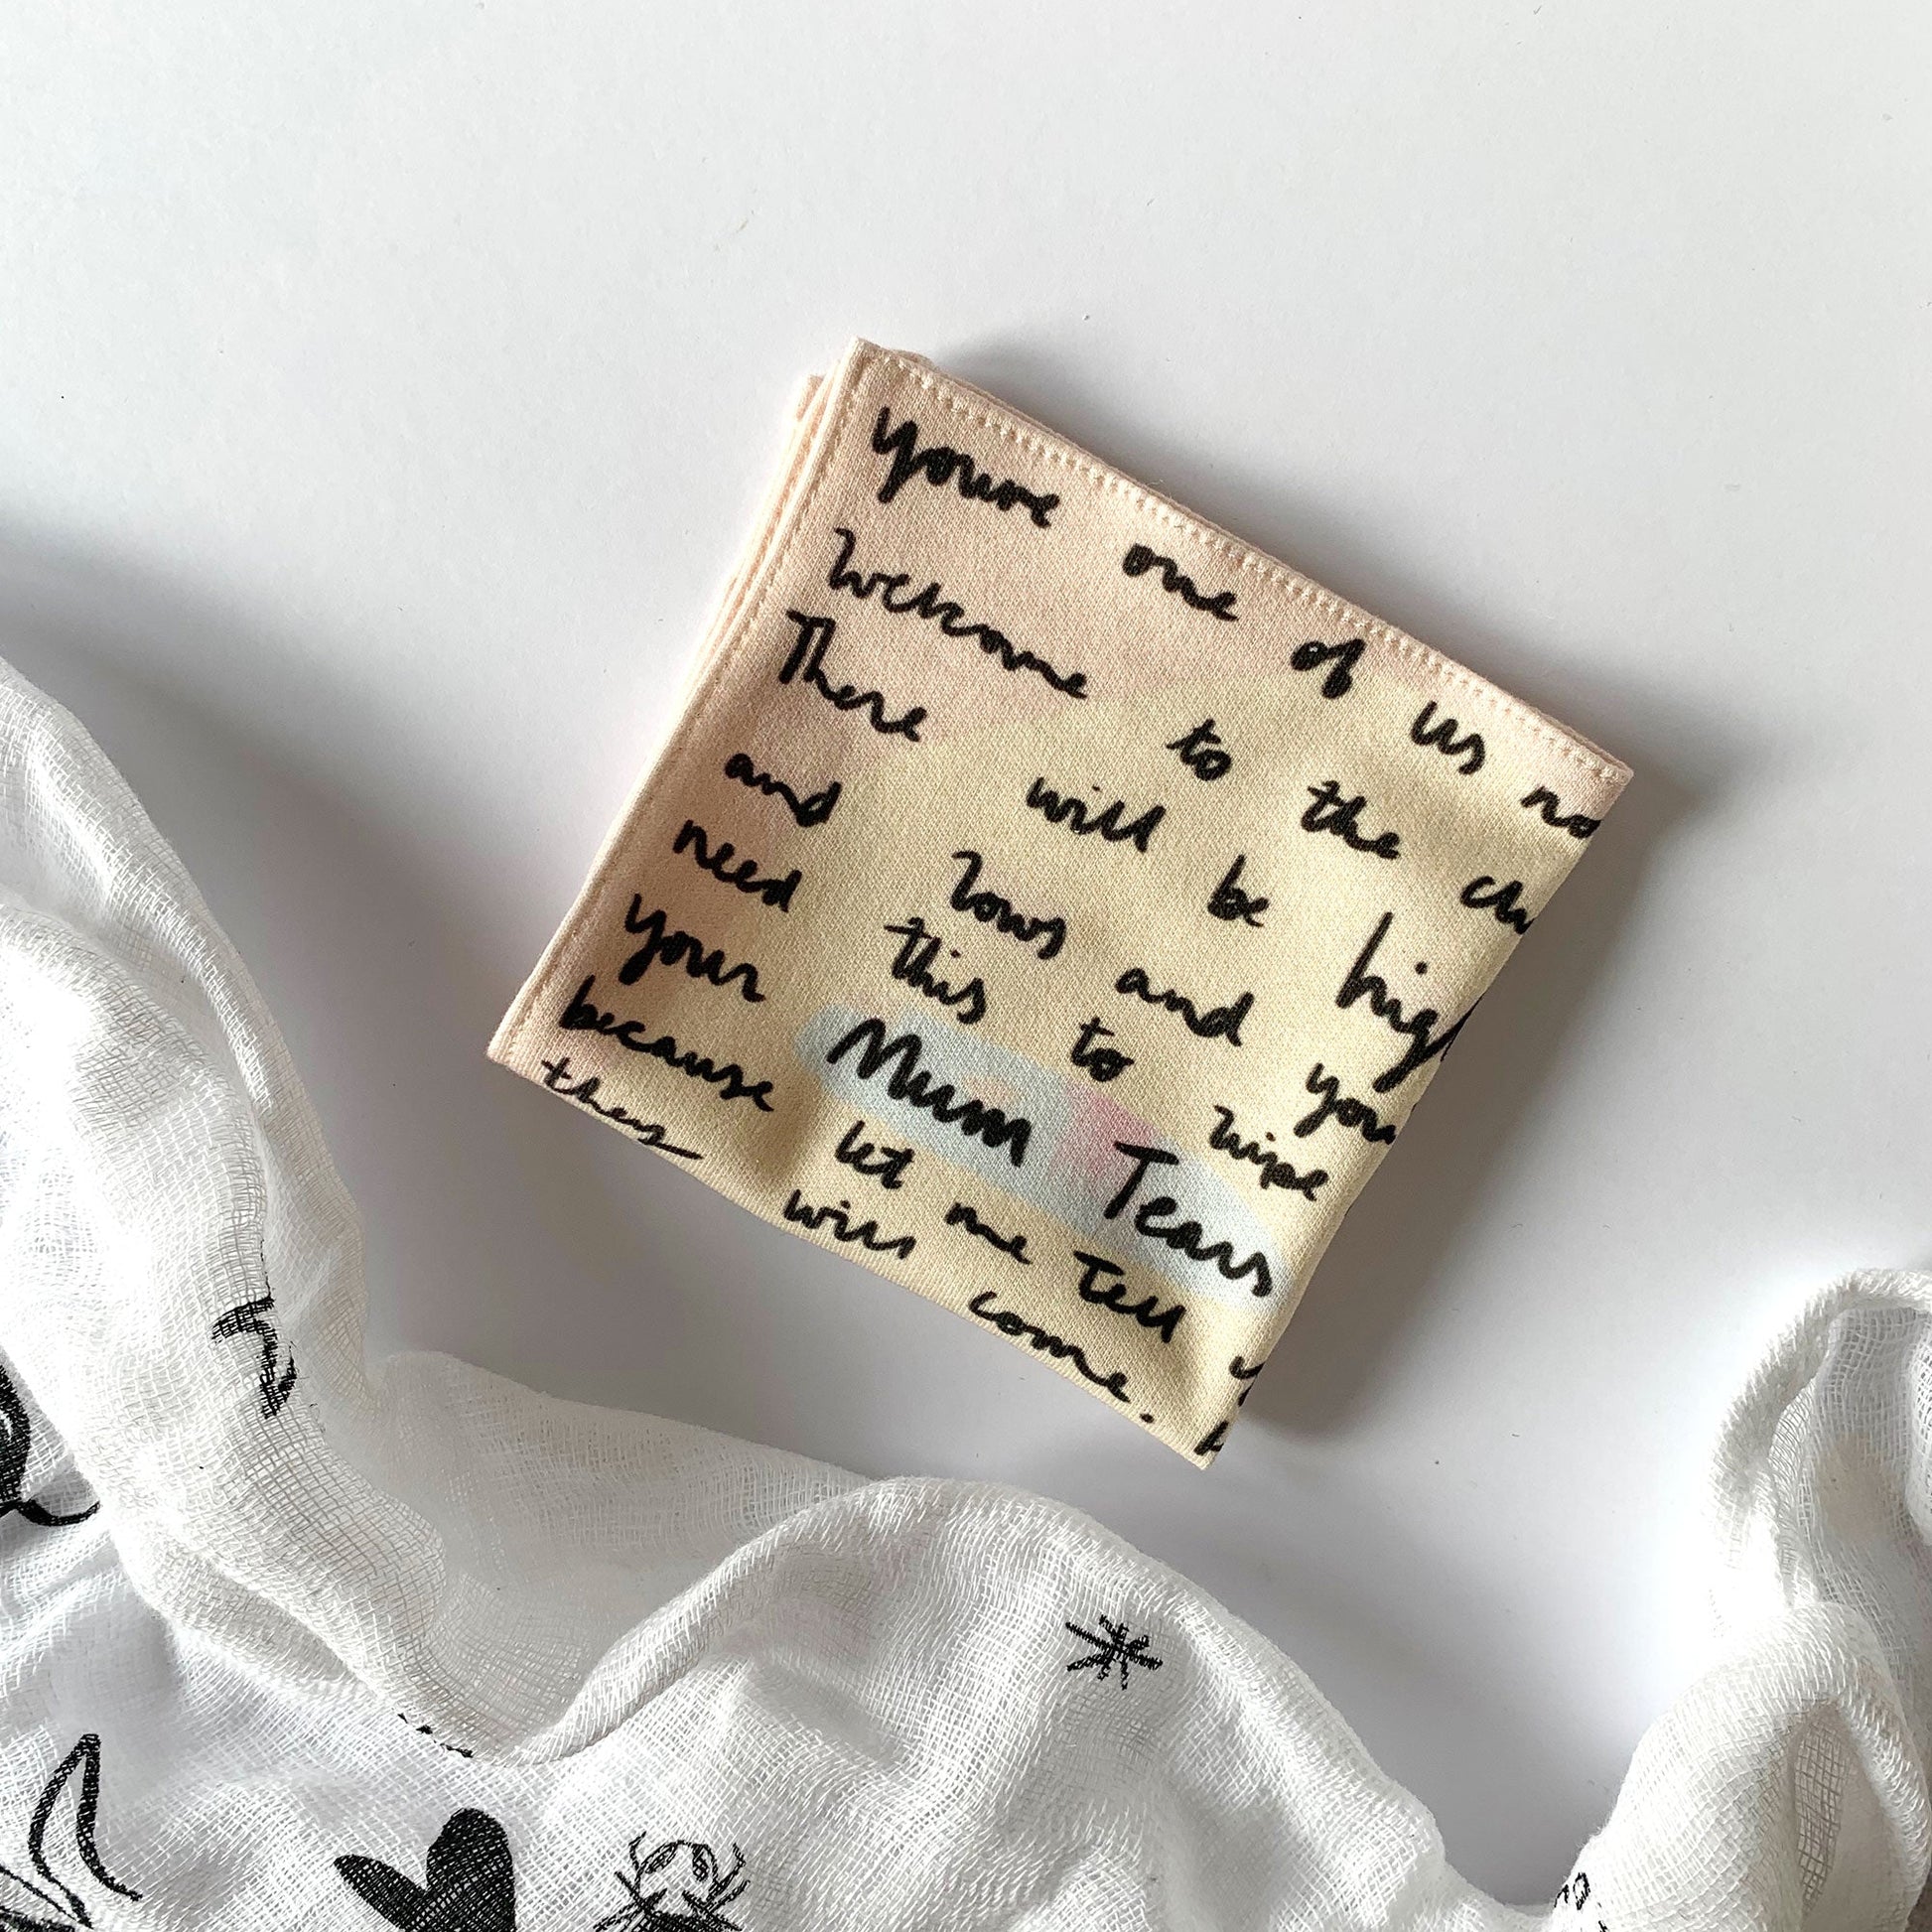 youre one of us no
Welcome to the clu
There will be hig
and lows and you
need this to wipe
your Mum Tears
because let me tell y
they will come.